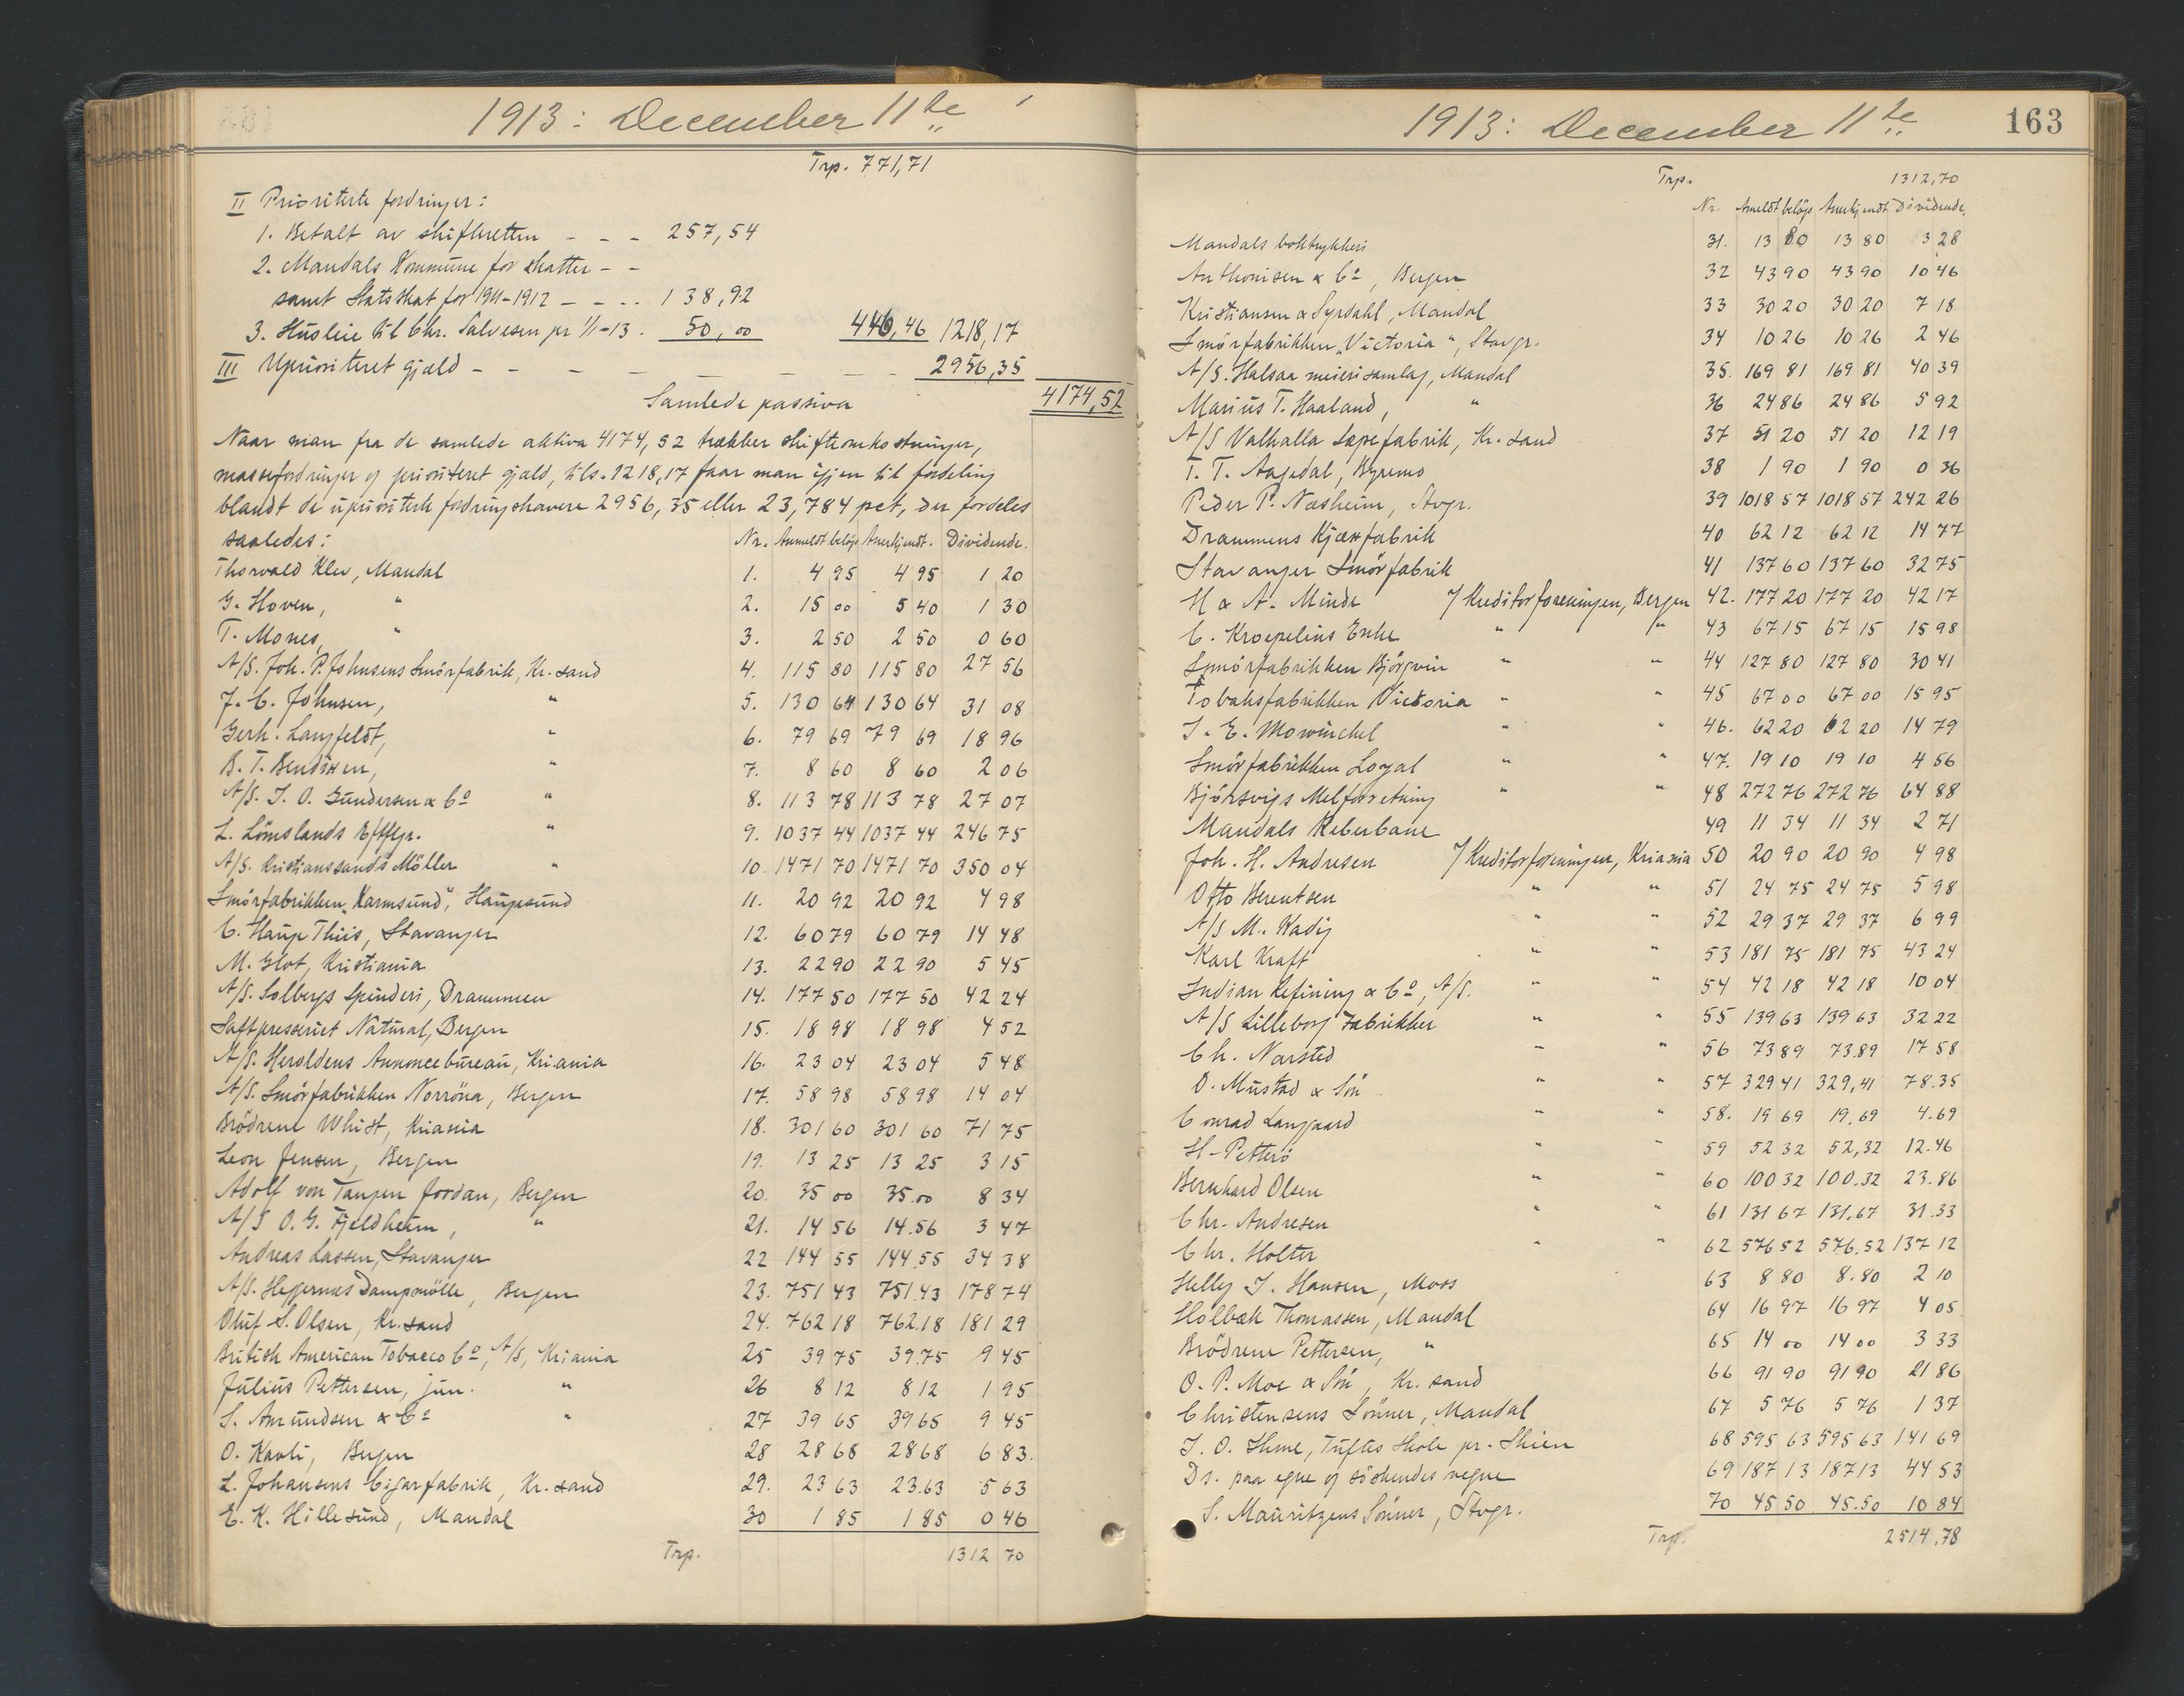 1913: December 11te
Trp. 771,71
II Prioriterte fordringer:
1. Betalt av skifteretten - - - 257,54
2. Mandals Kommune for skatter - -
samt Statsskat for 1911-1912 - - .. 138,92
3. Husleie til Chr. Salvesen pr 1/1-13. 50,00 446,46 1218,17
III Uprioriteret gjæld - - - - - - - - 2956,35
Samlede passiva 4174,52
Naar man fra de samlede aktiva 4174,52 trækker skifteomkostninger,
massefordringer og prioriteret gjæld, tils. 1218,17 faar man igjen til fordeling
blandt de uprioriterte fordringshavere 2956,35 eller 23,784 pct, der fordeles
saaledes: Nr. Anmeldt beløp Anerkjendt. Dividende.
Thorvald Klev, Mandal 1. 4 95 4 95 1 20
G. Hoven, " 2. 15 00 5 40 1 30
T. Mones, " 3. 2 50 2 50 0 60
A/S. Joh. P. Johnsens Smörfabrik, Kr. sand 4. 115 80 115 80 27 56
J. C. Johnsen, " 5. 130 64 130 64 31 08
Gerh. Langfeldt, " 6. 79 69 79 69 18 96
B. T. Bendixen, " 7. 8 60 8 60 2 06
A/S. J. O. Gundersen & Co " 8. 113 78 113 78 27 07
L. Lömslands Eftflgr. " 9. 1037 44 1037 44 246 75
A/S. Kristianssands Möller " 10. 1471 70 1471 70 350 04
Smörfabrikken "Karmsund", Haugesund 11. 20 92 20 92 4 98
C. Haug Thiis, Stavanger 12. 60 79 60 79 14 48
M. Glot, Kristiania 13. 22 90 22 90 5 45
A/S. Solbergs Spinderi, Drammen 14. 177 50 177 50 42 24
Saftpresseriet Natural, Bergen 15. 18 98 18 98 4 52
A/S. Heroldens Annoncebureau, Kr.iania 16. 23 04 23 04 5 48
A/S. Smörfabrikken Norröna, Bergen 17. 58 98 58 98 14 04
Brödrene Whist, Kriania 18. 301 60 301 60 71 75
Leon Jensen, Bergen 19. 13 25 13 25 3 15
Adolf von Tangen Jordan, Bergen 20. 35 00 35.00 8 34
A/S O. G. Fjeldheim, " 21. 14 56 14.56 3 47
Andreas Lassen, Stavanger 22 144 55 144.55 34 38
A/S. Hegernæs Dampmölle, Bergen 23. 751 43 751.43 178 74
Oluf S. Olsen, Kr. sand 24. 762 18 762.18 181 29
British American Tobacco Co, A/S, Kr.iania 25 39 75 39.75 9 45
Julius Pettersen, jun. " 26 8 12 8 12 1 95
S. Amundsen & Co " 27 39 65 39 65 9 45
O. Kavli, Bergen 28 28 68 28 68 6 83.
L. Johansens Cigarfabrik, Kr. sand 29. 23 63 23.63 5 63
E. K. Hillesund, Mandal 30 1 85 1 85 0 46
Trp. 1312 70
1913: December 11te 163
Trp. 1312,70
Nr. Anmeldt beløp Anerkjendt Dividende.
Mandals boktrykkeri 31. 13 80 13 80 3 28
Anthonisen & Co, Bergen 32 43 90 43 90 10 46
Kristiansen & Syrdahl, Mandal 33 30 20 30 20 7 18
Smörfabrikken "Victoria", Stavgr. 34 10 26 10 26 2 46
A/S. Halsaa meierisamlag, Mandal 35. 169 81 169 81 40 39
Marius T. Haaland, " 36 24 86 24 86 5 92
A/S Valhalla Sæpefabrik, Kr. sand 37 51 20 51 20 12 19
T. T. Aagedal, Byremo 38 1 90 1 90 0 36
Peder P. Næsheim, Stvgr. 39 1018 57 1018 57 242 26
Drammens Kjæxfabrik 40 62 12 62 12 14 77
Stavanger Smörfabrik 41 137 60 137 60 32 75
H & A. Minde 7/ Kreditorforeningen, Bergen 42. 177 20 177 20 42 17
C. Kroepelins Enke " " 43 67 15 67 15 15 98
Smörfabrikken Björgvin " " 44 127 80 127 80 30 41
Tobaksfabrikken Victoria " " 45 67 00 67 00 15 95
J. E. Mowinckel " " 46. 62 20 62 20 14 79
Smörfabrikken Loyal " " 47. 19 10 19 10 4 56
Björsvigs Melforretning " " 48 272 76 272 76 64 88
Mandals Reberbane 49 11 34 11 34 2 71
Joh. H. Andresen 7/ Kreditorforeningen, Kriania 50 20 90 20 90 4 98
Otto Berentsen " " 51 24 75 24 75 5 98
A/S M. Wadig " " 52 29 37 29 37 6 99
Karl Kraft " " 53 181 75 181 75 43 24
Indian Refining & Co, A/S. " " 54 42 18 42 18 10 04
A/S Lilleborg Fabrikker " " 55 139 63 139 63 32 22
Ch. Narsted " " 56 73 89 73.89 17 58
O. Mustad & Sön " " 57 329 41 329,41 78.35
Conrad Langaard " " 58. 19 69 19.69 4.69
H. Petterö " " 59 52 32 52,32 12.46
Bernhard Olsen " " 60 100 32 100.32 23.86
Chr. Andresen " " 61 131 67 131,67 31.33
Chr. Holter " " 62 576 52 576.52 137 12
Helly J. Hansen, Moss 63 8 80 8.80 2 10
Holbæk Thomassen, Mandal 64 16 97 16 97 4 05
Brödrene Pettersen, " 65 14 00 14 00 3 33
O. P. Moe & Sön, Kr. sand 66 91 90 91 90 21 86
Christensens Sönner, Mandal 67 5 76 5 76 1 37
J. O. Ihme, Tuftes Skole pr. Skien 68 595 63 595 63 141 69
Ds. paa egne og söskendes vegne 69 187 13 187 13 44 53
S. Mauritzens Sönner, Stvgr. 70 45 50 45.50 10 84
Trp. 2514.78